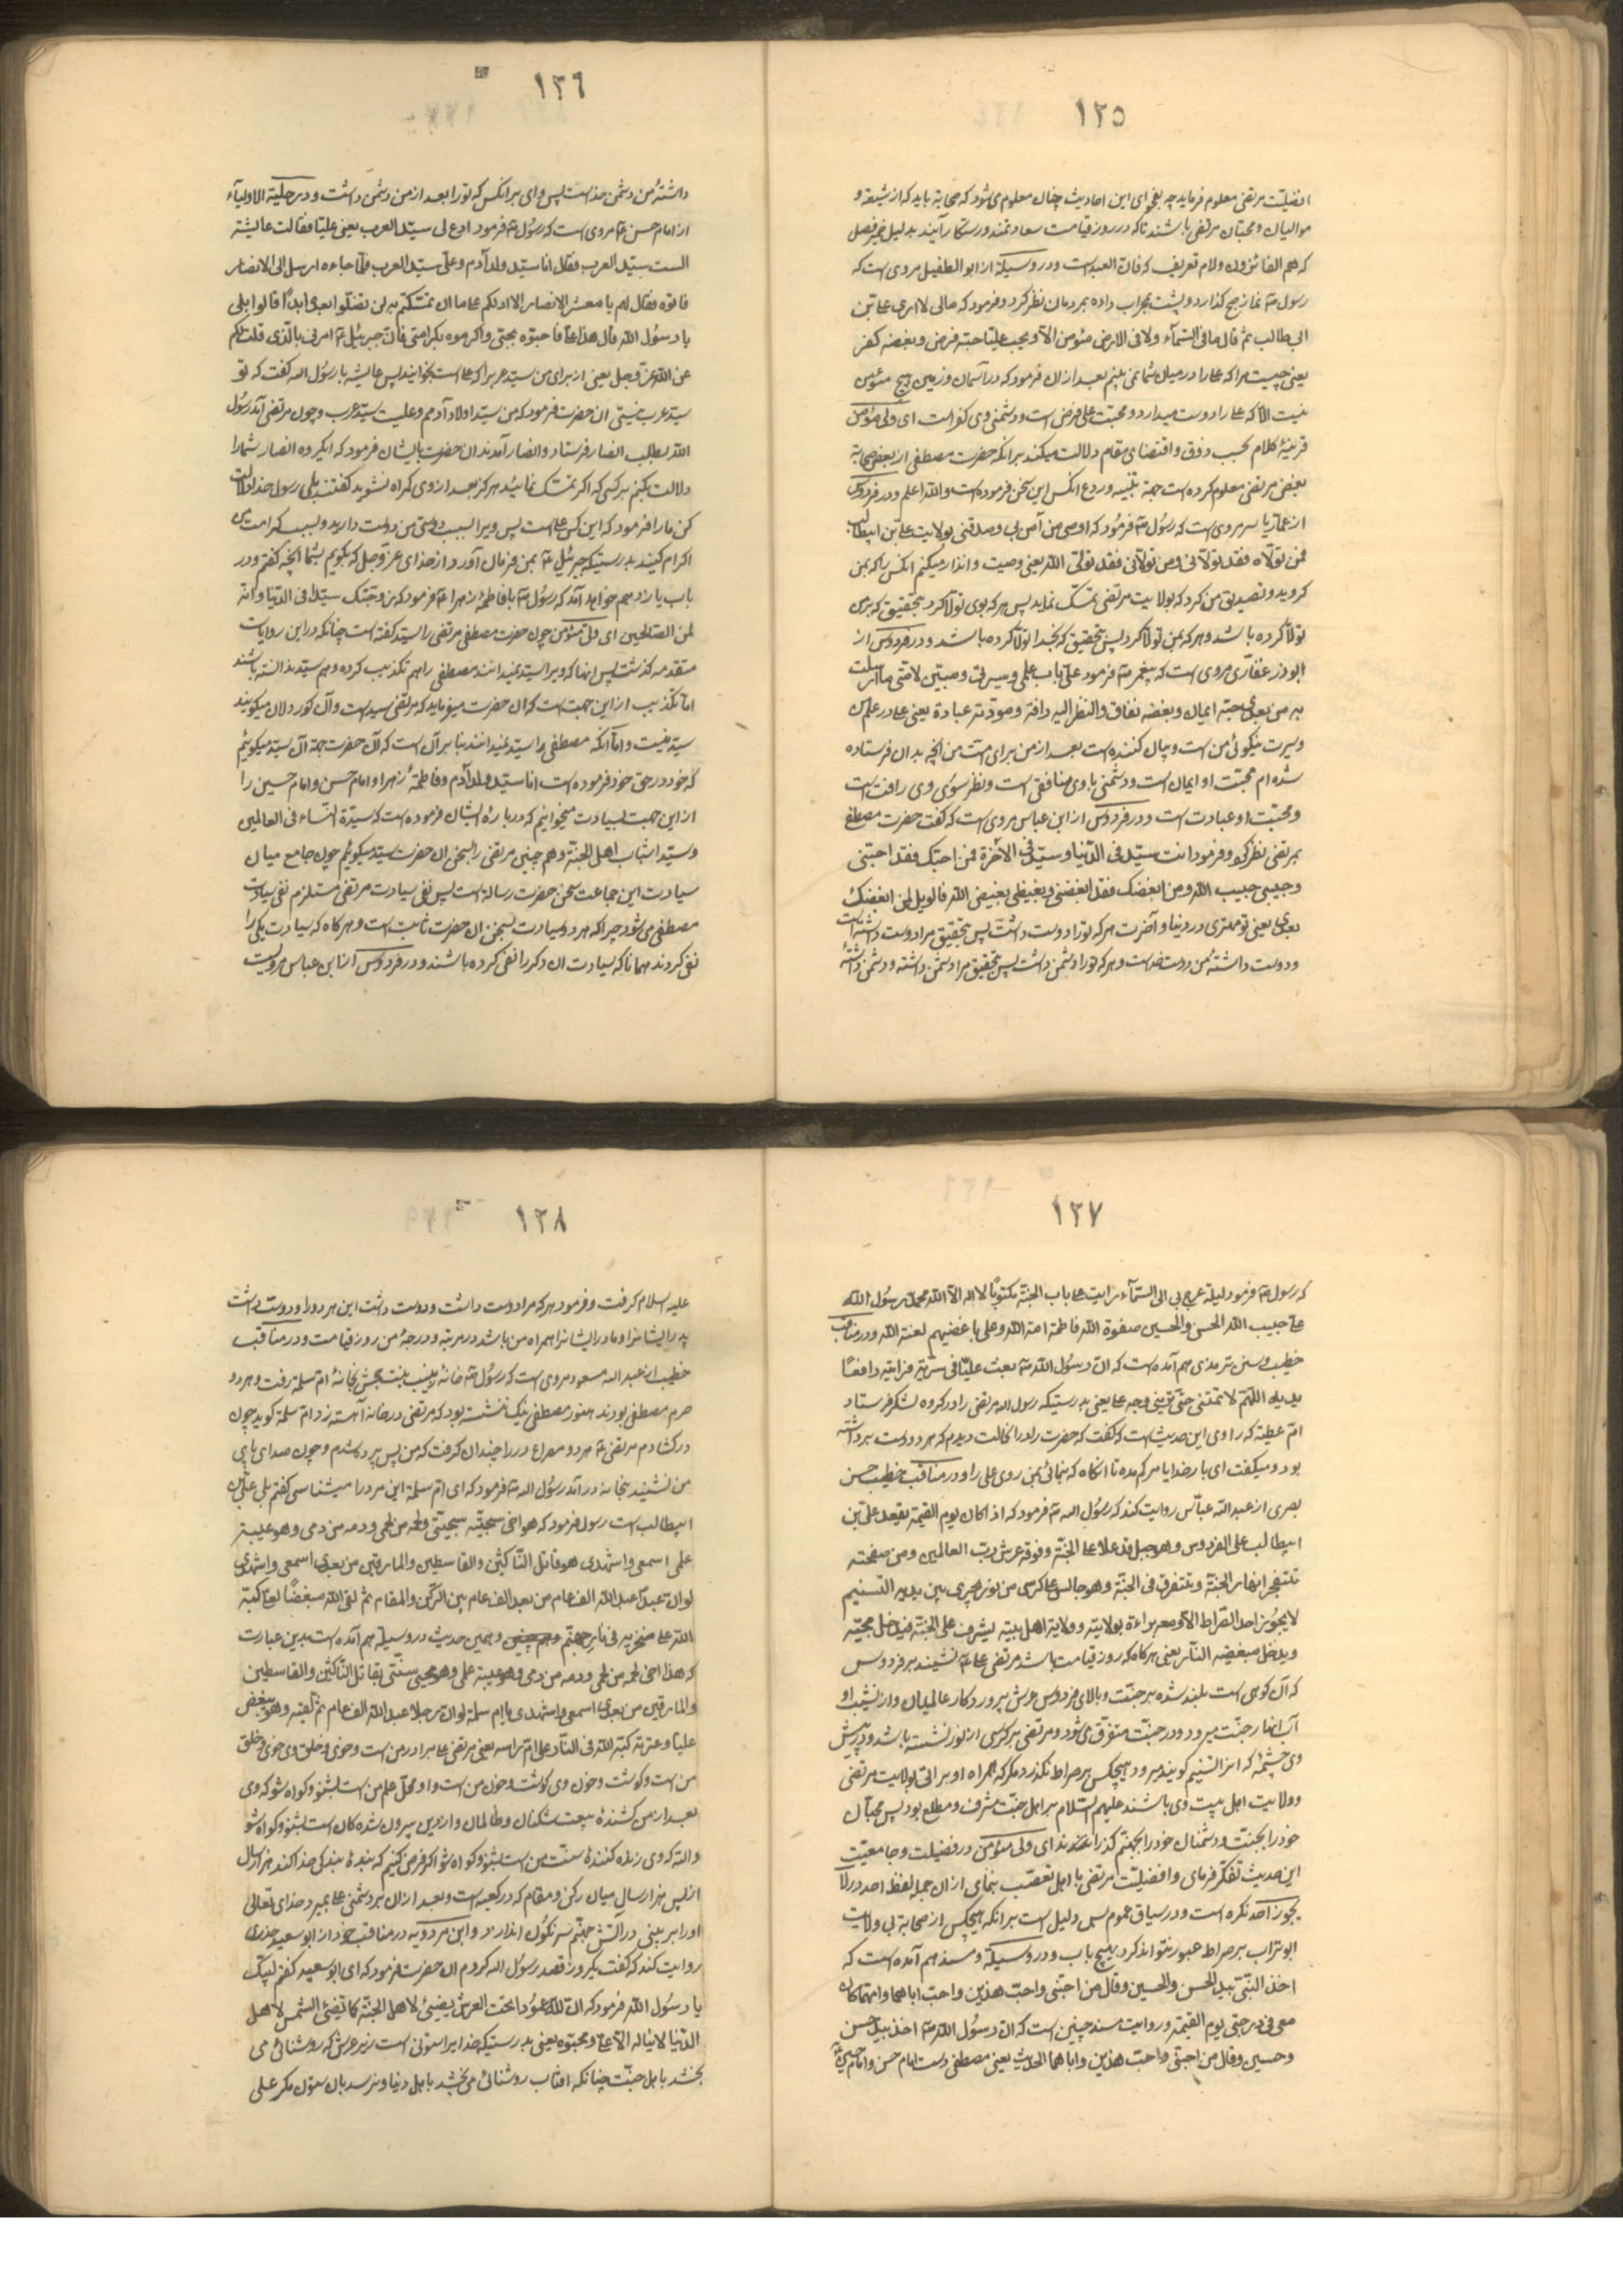 ١٢٥
افضلیّت مرتضی معلوم فرماید چه بفحوای این احادیث چنان معلوم می شود که صحابه باید که از شیعه و
موالیان و محبّان مرتضی باشند تا که در روز قیامت سعادتمند و رستکار آیند بدلیل ضمیر فصل
که هم الفائزون و لام تعریف که فانّ العبد است و در وسیلة از ابو الطفیل مروی است که
رسول ص نماز صبح کذارد و پشت بمحراب داده بمردمان نظر کرد و فرمود که مالی لا اری علی بن
ابی طالب ثم قال ما فی السّمآء ولا فی الارض مئومن الّا و یحب علیّا حبّه فرض و بغضه کفر
یعنی چیست مرا که علی را در میان شما نمی بینم بعد از ان فرمود که در آسمان و زمین هیچ مئومن
نیست الّا که علی را دوست میدارد و محبّت علی فرض است و دشمنی وی کفر است ای ولی مئومن
قرینهٔ کلام بحسب ذوق و اقتضای مقام دلالت میکند بر انکه حضرت مصطفی از بعض صحابة
بغض مرتضی معلوم کرده است جهة تنبیه و ردع انکس این سخن فرموده است و اللّه اعلم و در فردوس
از عمّار یاسر مروی است که رسُول ص فرمُود که اوصی من آمن بی و صدقنی بولایت علیّ بن ابیطالب
فمن تولّاه فقد تولّانی و من تولّانی فقد تولّی اللّه یعنی وصیت و انذار میکنم انکس را که بمن
کروید و تصدیق من کرد که بولایت مرتضی تمسّک نماید پس هر که بوی تولّا کرد بتحقیق که بمن
تولّا کرده باشد و هر که بمن تولّا کرد پس بتحقیق که بخدا تولّا کرده باشد و در فردوس از
ابوذر غفّاری مروی است که پیغمبر ص فرمود علیّ باب علمی و سیرتی و مبیّن لامّتی ما ارسلت
به من بعدی حبّه ایمان و بغضه نفاق والنظر الیه رافة و مودّته عبادة یعنی علی در علم من
و سیرت نیکوئی من است و بیان کننده است بعد از من برای امّت من انچه بدان فرستاده
شده ام محبّت او ایمان است و دشمنی با وی منافقی است و نظر سوُی وی رافت است
و محبّت او عبادت است و در فردوس از ابن عباس مروی است که کفت حضرت مصطفی
بمرتضی نظر کرد و فرمود انت سیّد فی الدّنیا و سیّد فی الآخرة فمن احبّک فقد احبّنی
و حبیبی حبیب اللّه و من ابغضک فقد ابغضنی و بغیضی بغیض اللّه فالویل لمن ابغضک
بعدی یعنی تو مهتری در دنیا و آخرت هر که تو را دوست داشت پس بتحقیق مرا دوست داشته است
و دوست داشتهٔ من دوست خداست و هر که تو را دشمن داشت پس بتحقیق مرا دشمن داشته و دشمن داشتهٔ
١٢٦
داشتهٔ من دشمن خداست پس وای بر انکس که تو را بعد از من دشمن داشت و در حلیة الاولیآء
از امام حسن ع مروی است که رسُول ص فرمود ادع لی سیّد العرب یعنی علیّا فقالت عایشة
الست سیّد العرب فقال انا سیّد ولد آدم و علیّ سیّد العرب فلمّا جاءه ارسل الی الانصار
فاتوه فقال لهم یا معشر الانصار الا ادلکم علی ما ان تمسّکتم به لن تضلّوا بعدی ابداً قالوا بلی
یا رسُول اللّه قال هذا علیّ فاحبّوه بحبّی و اکرموه بکرامتی فانّ جبرئیل ع امرنی بالّذی قلت لکم
عن اللّه عزّ وجل یعنی از برای من سیّد عرب را که علی است بخوانید پس عایشه با رسُول اللّه کفت که تو
سیّد عرب نیستی ان حضرت فرمود که من سیّد اولاد آدمم و علیست سیّد عرب و چون مرتضی آمد رسُول
اللّه بطلب انصار فرستاد و انصار آمدند ان حضرت بایشان فرمود که ایکروه انصار شما را
دلالت بکنم بر کسی که اکر تمسّک نمائید هرکز بعد از وی کمراه نشوید کفتند بلی رسول خدا دلالت
کن ما را فرمود که این کس علی است پس ویرا بسبب دوستی من دوست دارید و بسبب کرامت من
اکرام کنید بدرستیکه جبرئیل ع بمن فرمان آورد از خدای عزّ و جل که بکویم بشما انچه کفتم و در
باب یازدهم خواهد آمد که رسُول ص با فاطمهٔ زهرا ع فرمود که زوجتک سیّدا فی الدّنیا و انّه
لمن الصّالحین ای ولی مئومن چون حضرت مصطفی مرتضی را سیّد کفته است چنانکه در این روایات
متقدمه کذشت پس انها که ویرا سیّد نمیدانند مصطفی را هم تکذیب کرده و هم سیّد ندانسته باشند
اما تکذیب از این جهت است که ان حضرت میفرماید که مرتضی سید است و آن کوردلان میکویند
سیّد نیست و امّا آنکه مصطفی را سیّد نمیدانند بنا بر آن است که آن حضرت جهة آن سیّد میکوئیم
که خود در حقّ خود فرموده است انا سیّد ولد آدم و فاطمهٔ زهرا و امام حسن و امام حسین را
از این جهت بسیادت میخوانیم که در بارهٔ ایشان فرموده است که سیّدة النّساء فی العالمین
و سیّدا شباب اهل الجنّة و هم چنین مرتضی را بسخن ان حضرت سیّد میکوئیم چون جامع میان
سیادت این جماعت سخن حضرت رسالة است پس نفی سیادت مرتضی مستلزم نفی سیادت
مصطفی می شود چرا که هر دو سیادت بسخن ان حضرت ثابت است و هر کاه که سیادت یکی را
نفی کردند همانا که سیادت ان دکر را نفی کرده باشند و در فردوس از ابن عباس مرویست
١٢٧
که رسول ص فرمود لیلة عرج بی الی السّمآء رایت علی باب الجنّة مکتوباً لا اله الّا اللّه محمّد رسُول اللّه
علی حبیب اللّه الحسن والحسین صفوة اللّه فاطمة امة اللّه و علی باغضیهم لعنة اللّه و در مناقب
خطیب و سنن ترمذی هم آمده است که انّ رسُول اللّه ص بعث علیّا فی سرّیة فرایته رافعاً
یدیه اللّهم لا تمتنی حتّی ترینی وجه علی یعنی بدرستیکه رسول اله مرتضی را در کروه لشکر فرستاد
امّ عطیّه که راوی این حدیث است که کفت که حضرت را در انحالت دیدم که هر دو دست برداشته
بود و میکفت ای بار خدایا مرکم مده تا انکاه که بنمائی بمن روی علی را و در مناقب خطیب حسن
بصری از عبد اللّه عبّاس روایت کند که رسُول اله ص فرمود که اذا کان یوم القیمة یقعد علیّ بن
ابیطالب علی الفردوس و هو جبل قد علا علی الجنّة و فوقه عرش ربّ العالمین و من صفحته
تتفجّر انهار الجنّة و تتفرق فی الجنّة و هو جالس علی کرسی من نور یجری بین یدیه التّسنیم
لا یجُوز احد الصّراط الّا و معه براءة بولایته و ولایة اهل بیته یشرف علی الجنّة فیدخل محبّیه
و یدخل مبغضیه النّار یعنی هرکاه که روز قیامت باشد مرتضی علی ع نشیند بر فردوس
که آن کوهی است بلند شده بر جنّت و بالای فردوس عرش پروردکار عالمیان و از نشیب او
آب انهار جنّت میرود و در جنّت متفرّق می شود و مرتضی بر کرسی از نور نشسته باشد و در پیش
وی چشمهٔ که انرا تسنیم کویند میرود هیچکس بر صراط نکذرد مکر که همراه او براتی بولایت مرتضی
و ولایت اهل بیت وی باشند علیهم السّلام بر اهل جنّت مشرف و مطلع بود پس محبّان
خود را بجنّت و دشمنان خود را بجهنّم کذراند ای ولی مئومن در فضیلت و جامعیّت
این حدیث تفکّر فرمای و افضلیّت مرتضی با اهل تعصّب بنمای از ان جمله لفظ احد در لا
یجوز احد نکره است و در سیاق عموم پس دلیل است بر انکه هیچکس از صحابة بی ولایت
ابو تراب بر صراط عبور نتواند کرد بهیچ باب و در وسیلة و مسند هم آمده است که
اخذ النّبیّ بید الحسن والحسین و قال من احبّنی و احبّ هذین و احبّ اباهما و امّهما کان
معی فی درجتی یوم القیمة و روایت مسند چنین است که انّ رسُول اللّه ص اخذ بید حسن
و حسین و قال من احبّنی و احبّ هذین و اباهما الحدیث یعنی مصطفی دست امام حسن و امام حسین
١٢٨
علیه السلام کرفت و فرمود هر که مرا دوست داشت و دوست داشت این هر دو را و دوست داشت
پدر ایشانرا و مادر ایشانرا همراه من باشد در مرتبه و درجهٔ من روز قیامت و در مناقب
خطیب از عبد اله مسعود مروی است که رسُول ص خانهٔ زینب بنت جحش بخانهٔ امّ سلمة رفت و هر دو
حرم مصطفی بودند هنوز مصطفی نیک ننشسته بود که مرتضی در خانه آهسته زد امّ سلمة کوید چون
در کشادم مرتضی ع هر دو مصراع در را چندان کرفت که من پس پرده شدم و چون صدای پای
من نشنید بخانه در آمد رسُول اله ص فرمود که ای امّ سلمة این مرد را میشناسی کفتم بلی علی بن
ابیطالب است رسول فرمود که هو اخی سجیّته سجیّتی و لحمه من لحمی و دمه من دمی و هو عیبة
علمی اسمعی و اشهدی هو قاتل النّاکثین والقاسطین والمارقین من بعدی اسمعی و اشهدی
لو انّ عبداً عبد اللّه الف عام من بعد الف عام بین الرّکن والمقام ثم لقی اللّه مبغضاً لعلی کبّه
اللّه علی منخریه فی نار جهنّم و همین حدیث در وسیلة هم آمده است بدین عبارت
که هذا اخی لحمه من لحمی و دمه من دمی و هو عیبة علمی و هو محیی سنّتی یقاتل النّاکثین والقاسطین
والمارقین من بعدی اسمعی و اشهدی یا ام سلمة لو انّ رجلا عبد اللّه الف عام ثم لقیه و هو یبغض
علیّا و عترته کبّه اللّه فی النّار علی امّ راسه یعنی مرتضی علی برادر من است و خوی و خلق وی خوی و خلق
من است و کوشت و خون وی کوشت و خون من است و او محلّ علم من است بشنو و کواه شو که وی
بعد از من کشندهٔ بیعت شکنان و ظالمان و از دین بیرون شده کان است بشنو و کواه شو
و اللّه که وی زنده کنندهٔ سنّت من است بشنو و کواه شو اکر فرض کنیم که بندهٔ بندکی خدا کند هزار سال
از پس هزار سال میان رکن و مقام که در کعبه است و بعد از ان بر دشمنی علی بمیرد خدای تعالی
او را بر بینی در اتش جهنّم سرنکُون اندازد و ابن مردویه در مناقب خود از ابو سعید خدری
روایت کند که کفت یکروز قصد رسُول اله کردم ان حضرت فرمود که ای ابو سعید کفتم لبّیک
یا رسُول اللّه فرمود که انّ للّه عمُودا تحت العرش یضیئ لاهل الجنّة کما یضئ الشمس لاهل
الدّنیا لا یناله الّا علی و محبّوه یعنی بدرستیکه خدایرا ستونی است زیر عرش که روشنائی می
بخشد باهل جنّت چنانکه افتاب روشنائی می بخشد باهل دنیا و نرسد بان ستون مکر علی